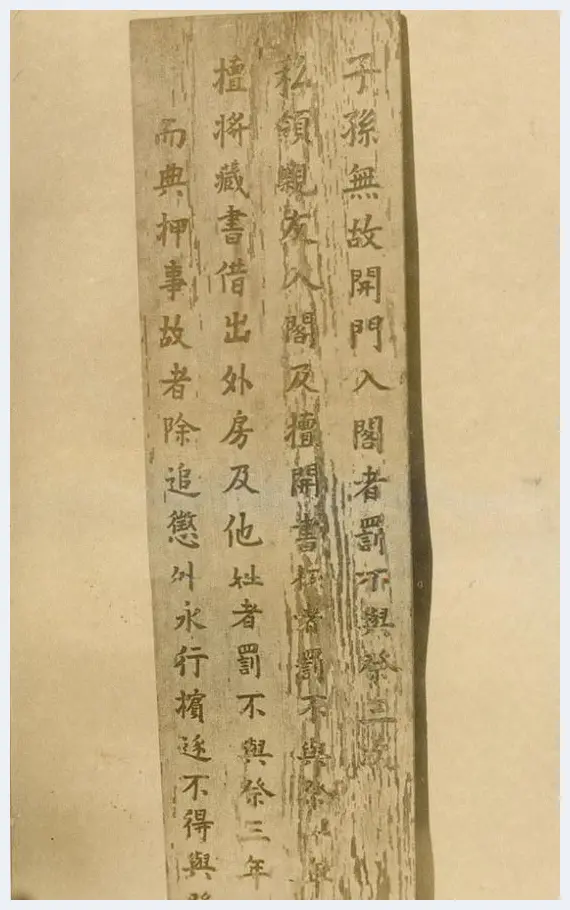 子孫無故開門入閣者罰不與祭三次
私領親友入閣及擅開書者罰不與祭年
擅將藏書借出外房及他姓者罰不與祭三年
而典押事故者除追懲外永行擯逐不得與